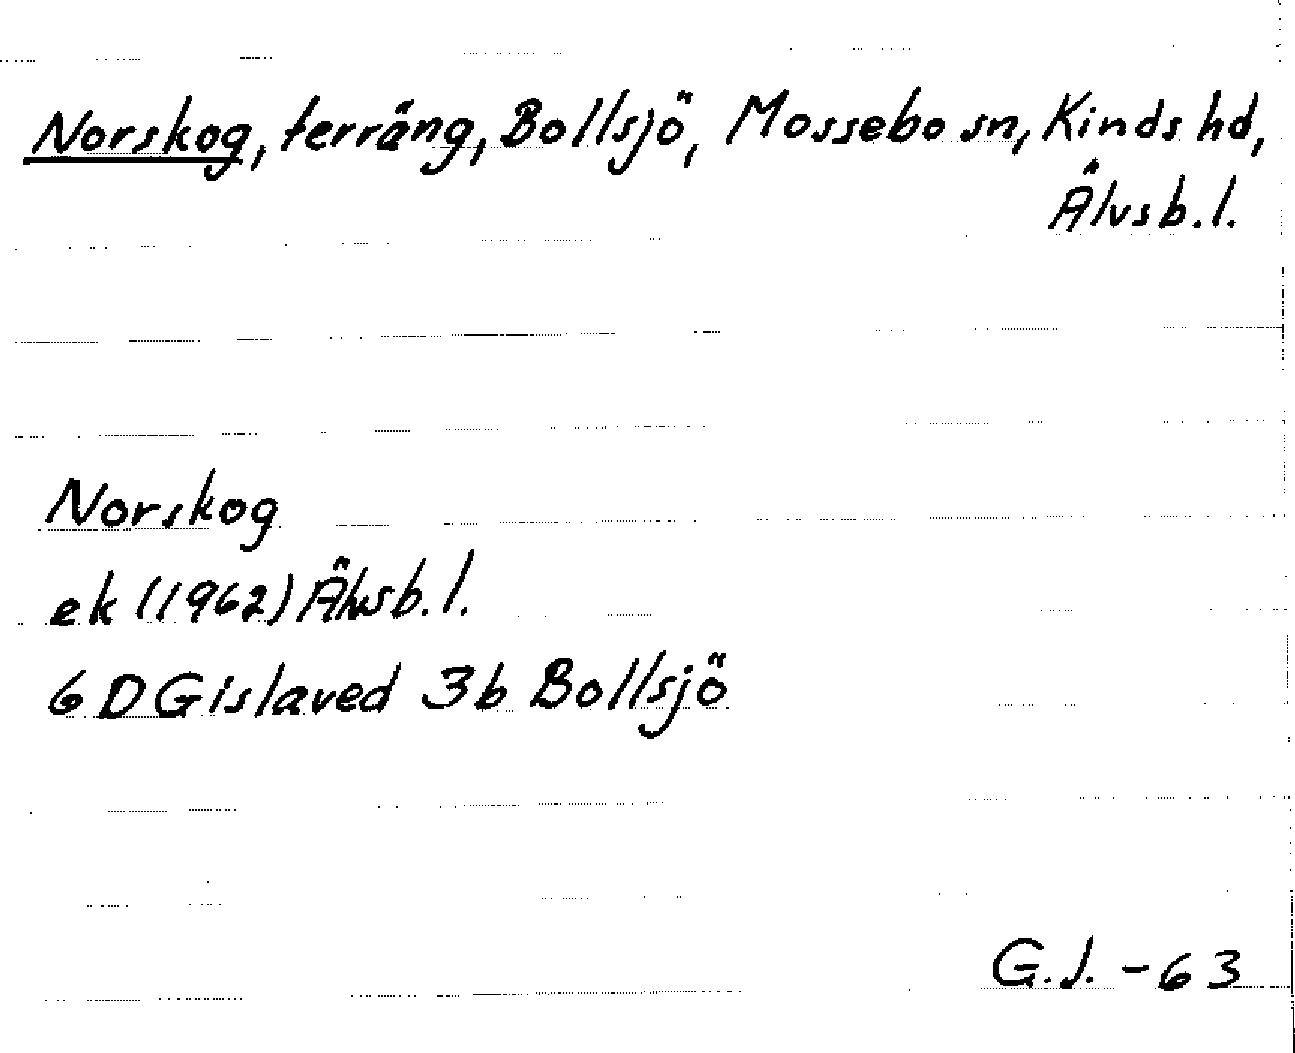 Norskog, terräng, Bollsjö, Mossebo sn, Kinds hd,
Älvsb.l.
Norskog
ek (1962) Älvsb.l.
6 D Gislaved 3b Bollsjö
G.J. -63